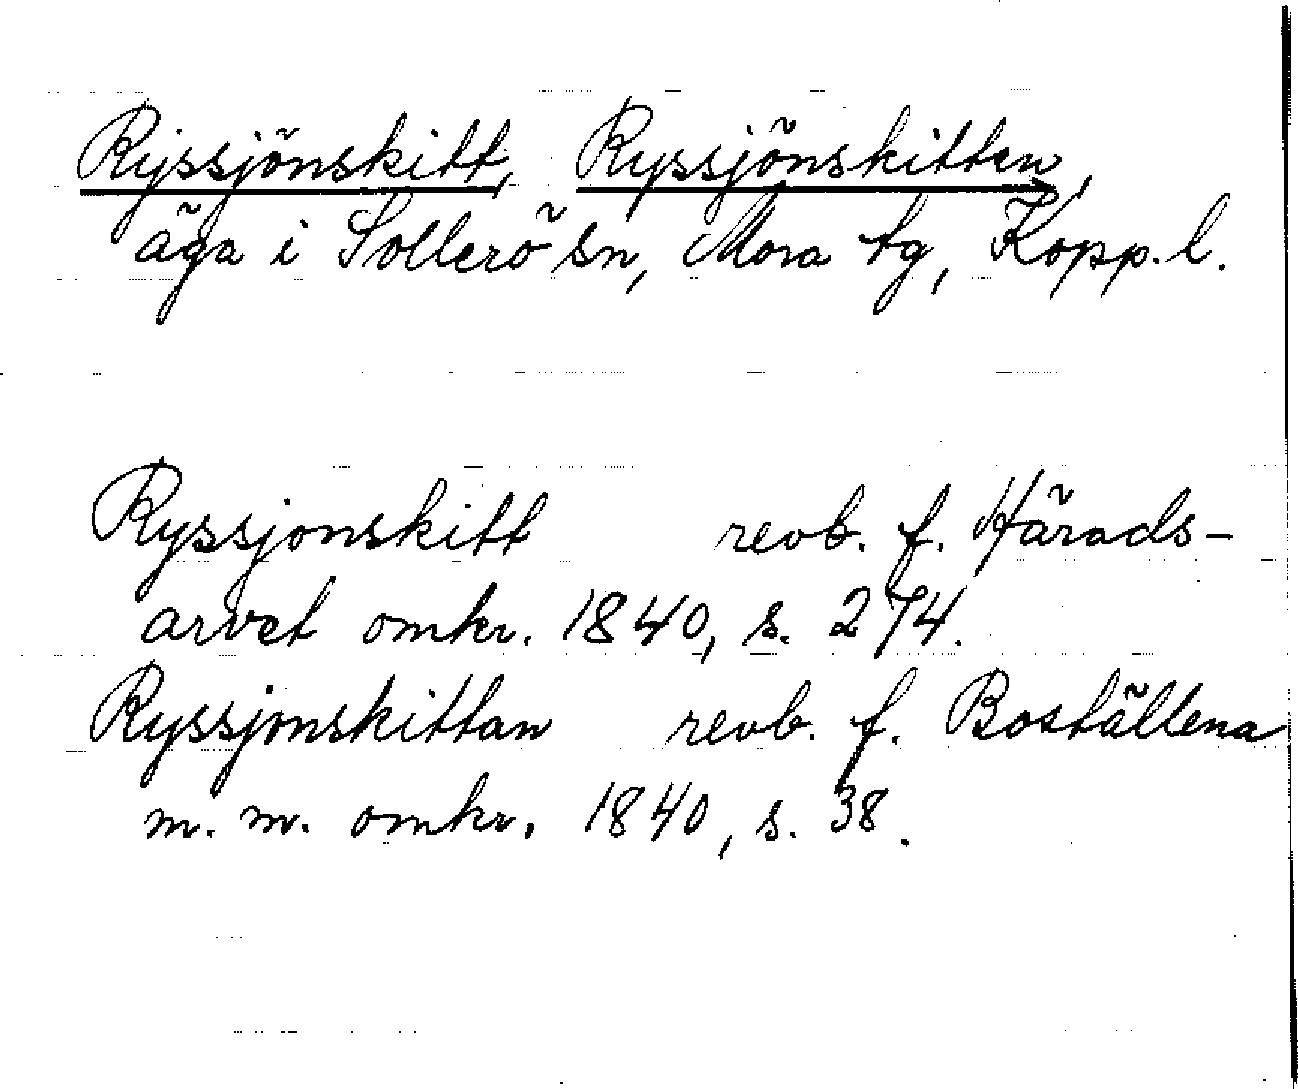 Ryssjönskitt, Ryssjönskitten,
äga i Sollerö sn, Mora tg, Kopp. l.
Ryssjonskitt revb. f. Härads-
arvet omkr. 1840, s. 274.
Ryssjonskittan revb. f. Boställena
m. m. omkr. 1840, s. 38.